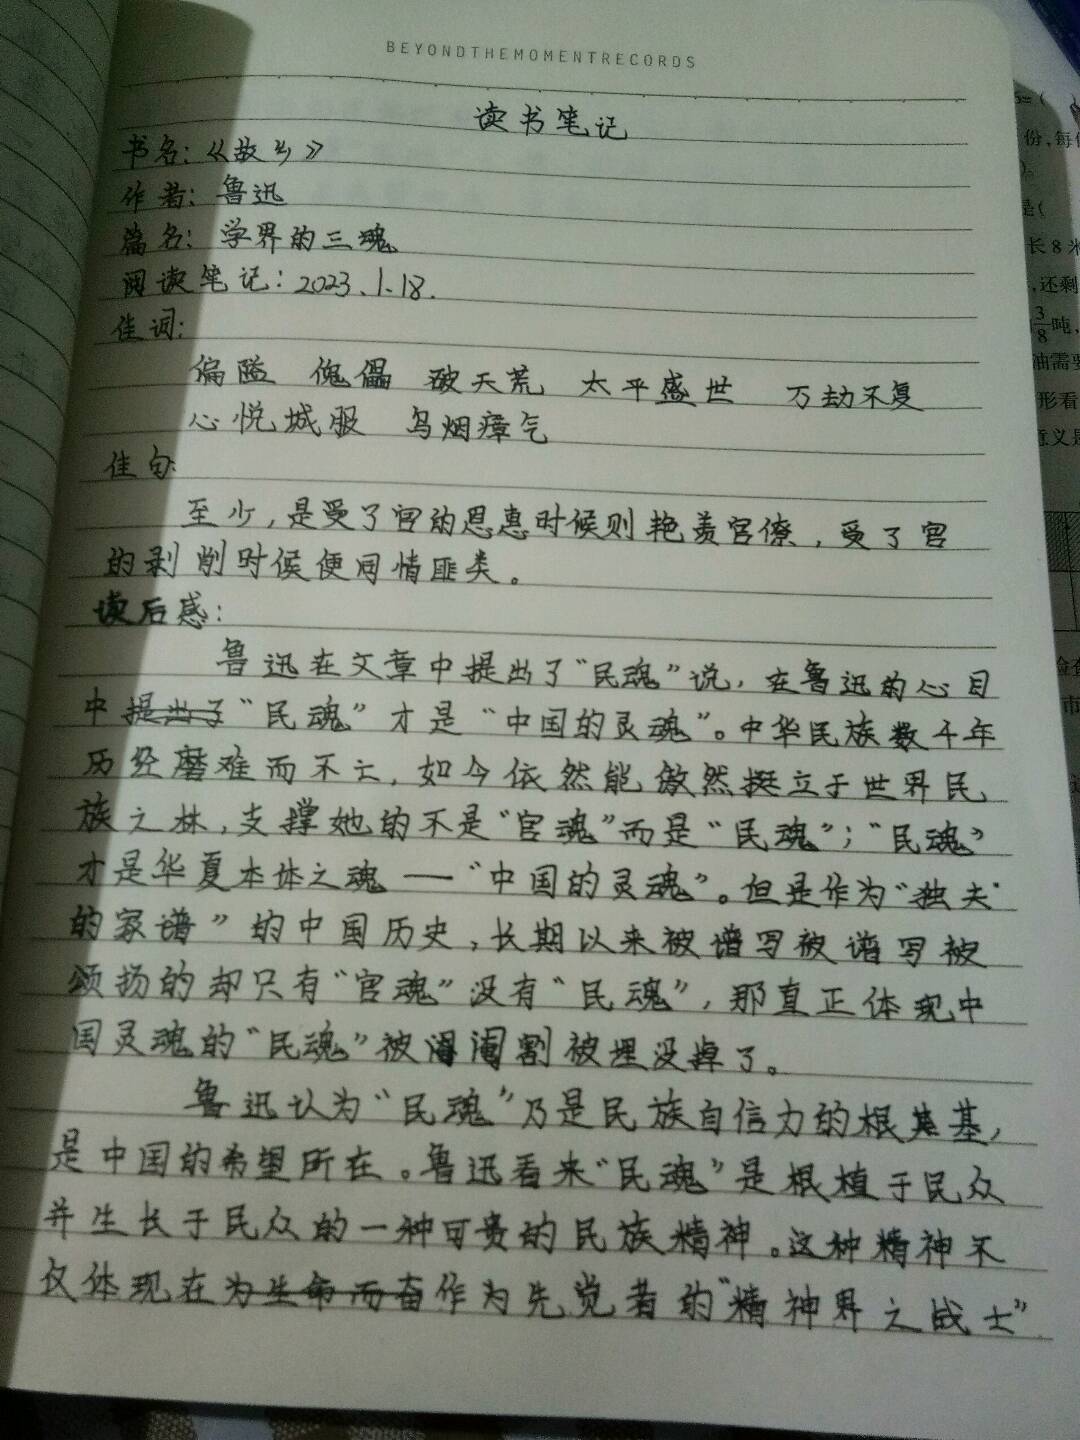 BEYONDTHEMOMENTRECORDS
读书笔记
书名：《故乡》
作者：鲁迅
篇名：学界的三魂
阅读笔记：2023.1.18.
佳词：
偏隘 傀儡 破天荒 太平盛世 万劫不复
心悦城服 乌烟瘴气
佳句：
至少，是受了官的恩惠时候则艳羡官僚，受了官
的剥削时候便同情匪类。
读后感：
鲁迅在文章中提出了“民魂”说，在鲁迅的心目
中提出了“民魂”才是“中国的灵魂”。中华民族数千年
历经磨难而不亡，如今依然能傲然挺立于世界民
族之林，支撑她的不是“官魂”而是“民魂”；“民魂”
才是华夏本体之魂——“中国的灵魂”。但是作为“独夫
的家谱”的中国历史，长期以来被谱写被谱写被
颂扬的却只有“官魂”没有“民魂”，那真正体现中
国灵魂的“民魂”被阉割被埋没掉了。
鲁迅认为“民魂”乃是民族自信力的根基，
是中国的希望所在。鲁迅看来“民魂”是根植于民众
并生长于民众的一种可贵的民族精神。这种精神不
仅体现在为生命而奋作为先觉者的“精神界之战士”
份，每
是(
长8米
，还剩
3/8吨，
油需要
形看
意义是